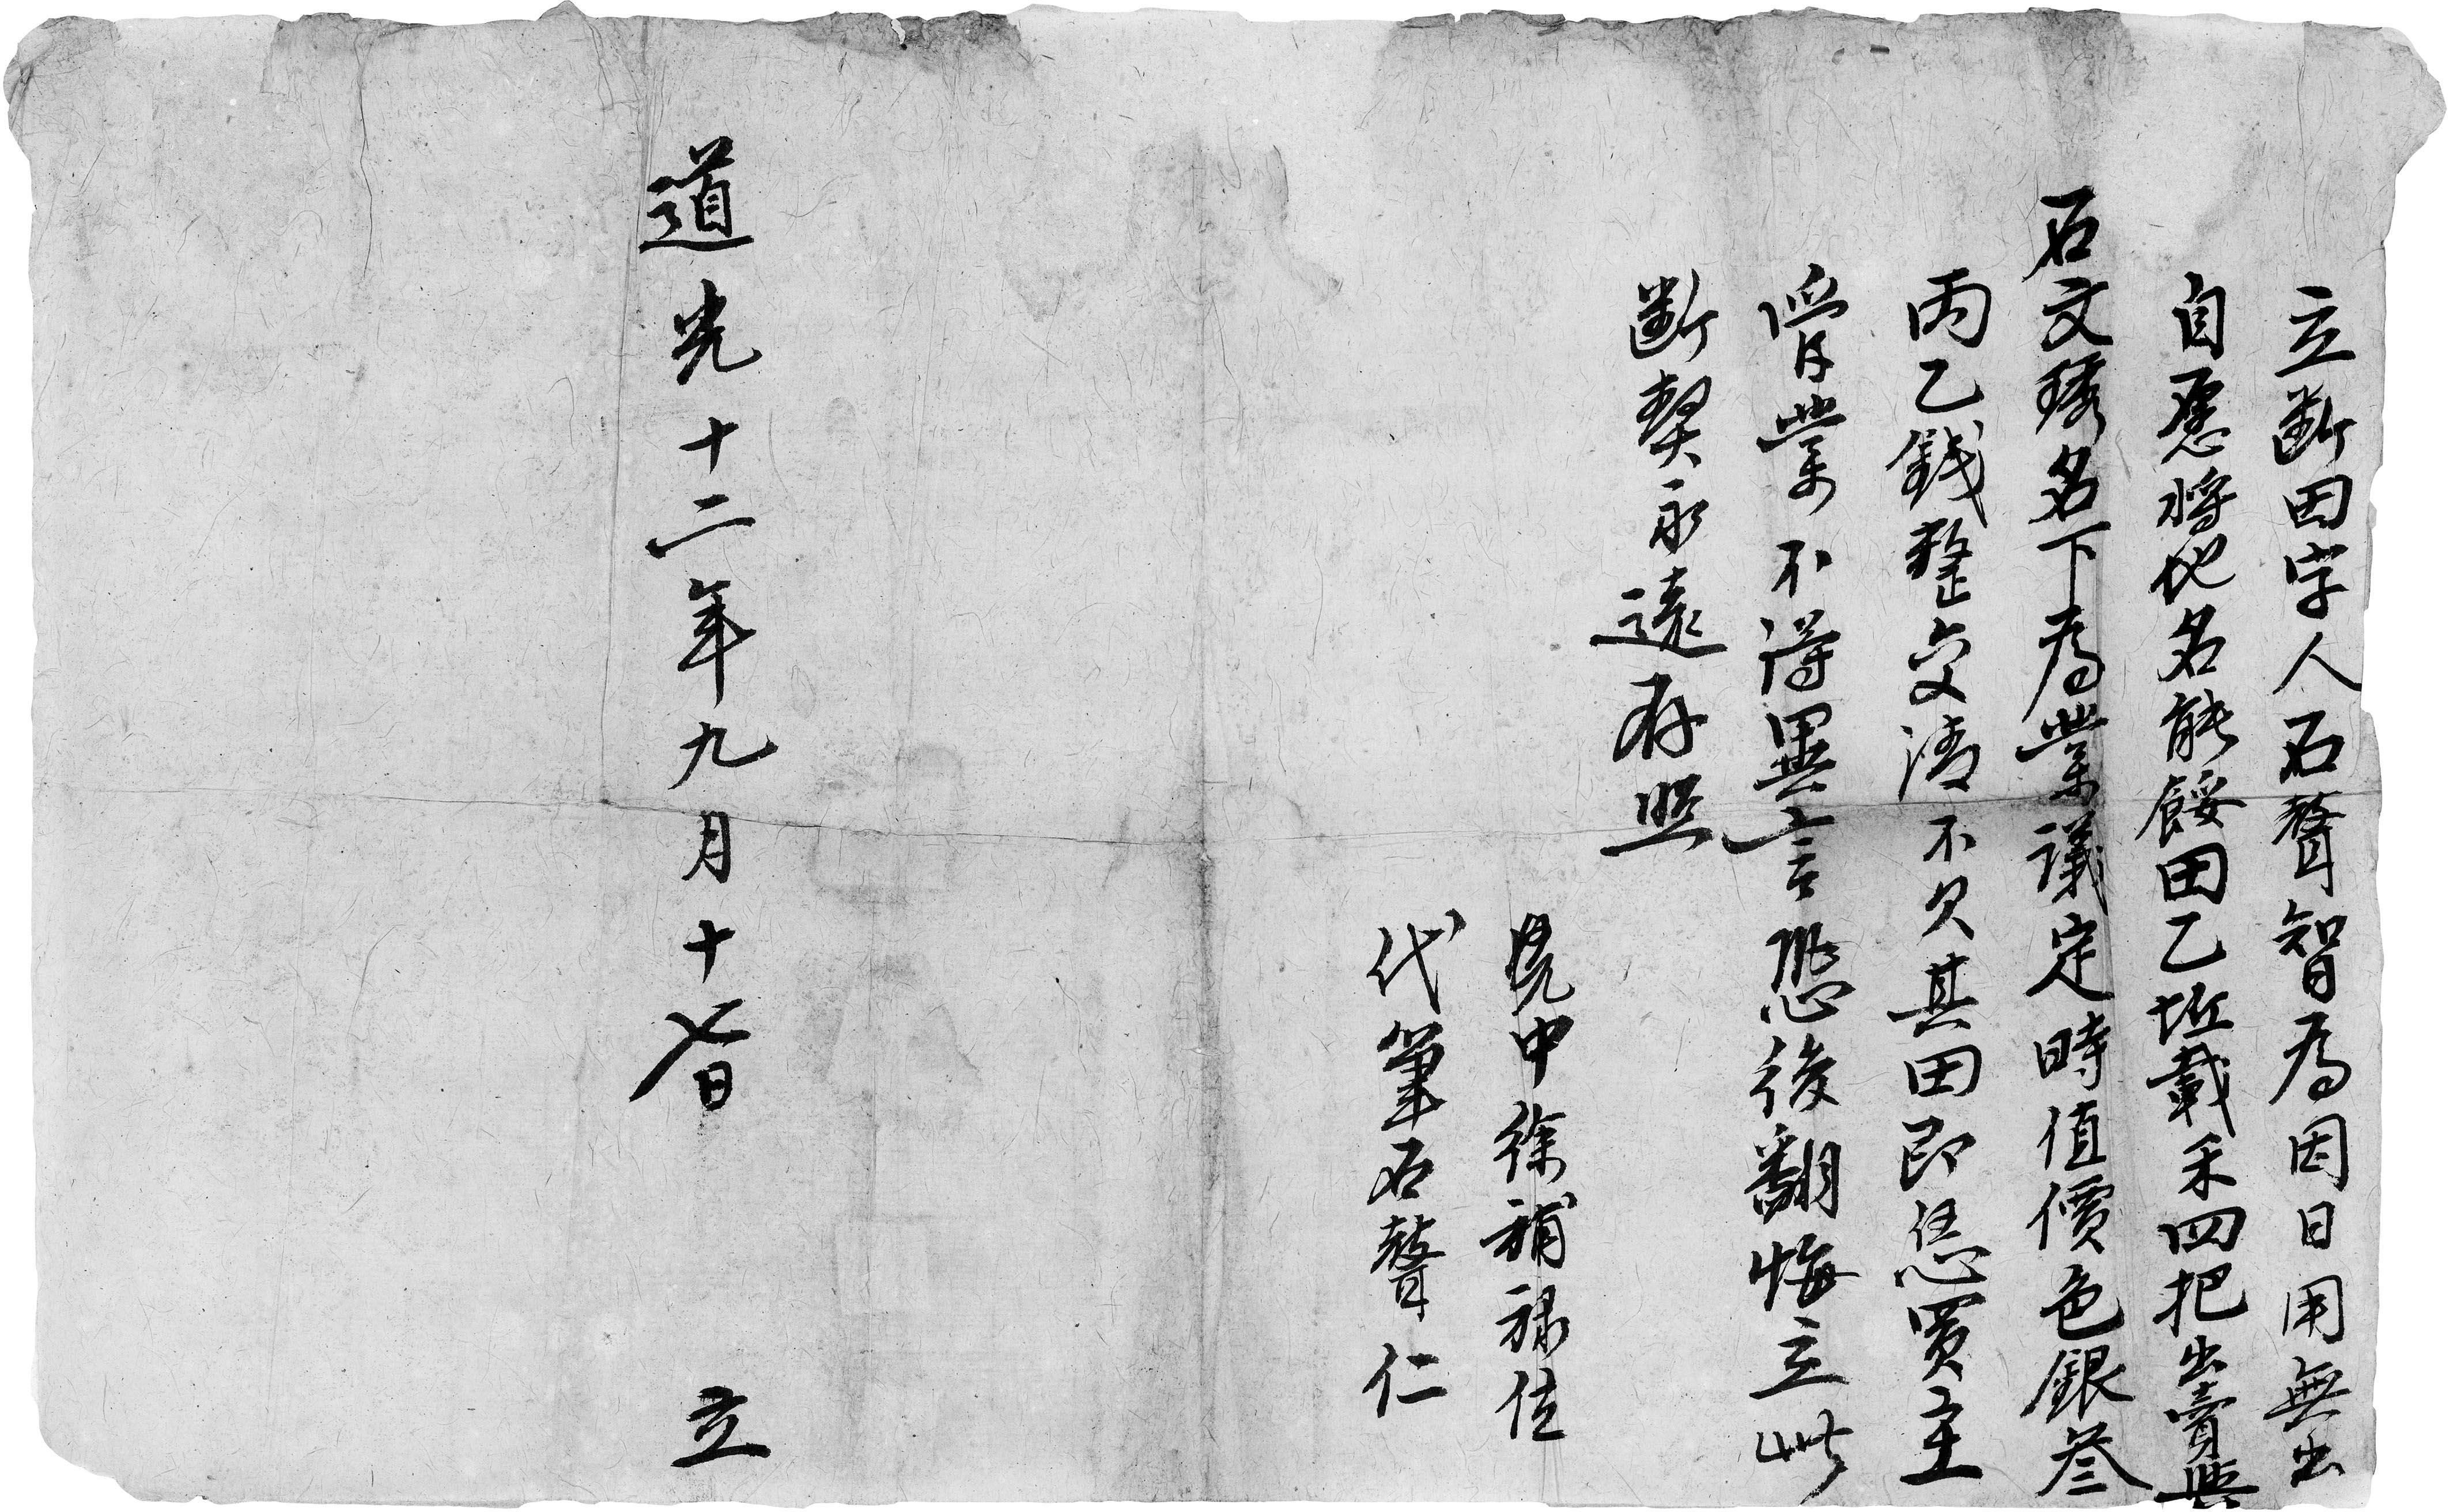 立斷田字人石聱智為因日用無出
自愿將地名能餒田乙坵載禾四把出賣與
石文琇名下為業議定時值價色銀叁
両乙錢整交清不欠其田即恁買主
管業不得異言恐後翻悔立此
斷契永遠存照
凭中徐補祿位
代筆石聱仁
道光十二年九月十七日 立